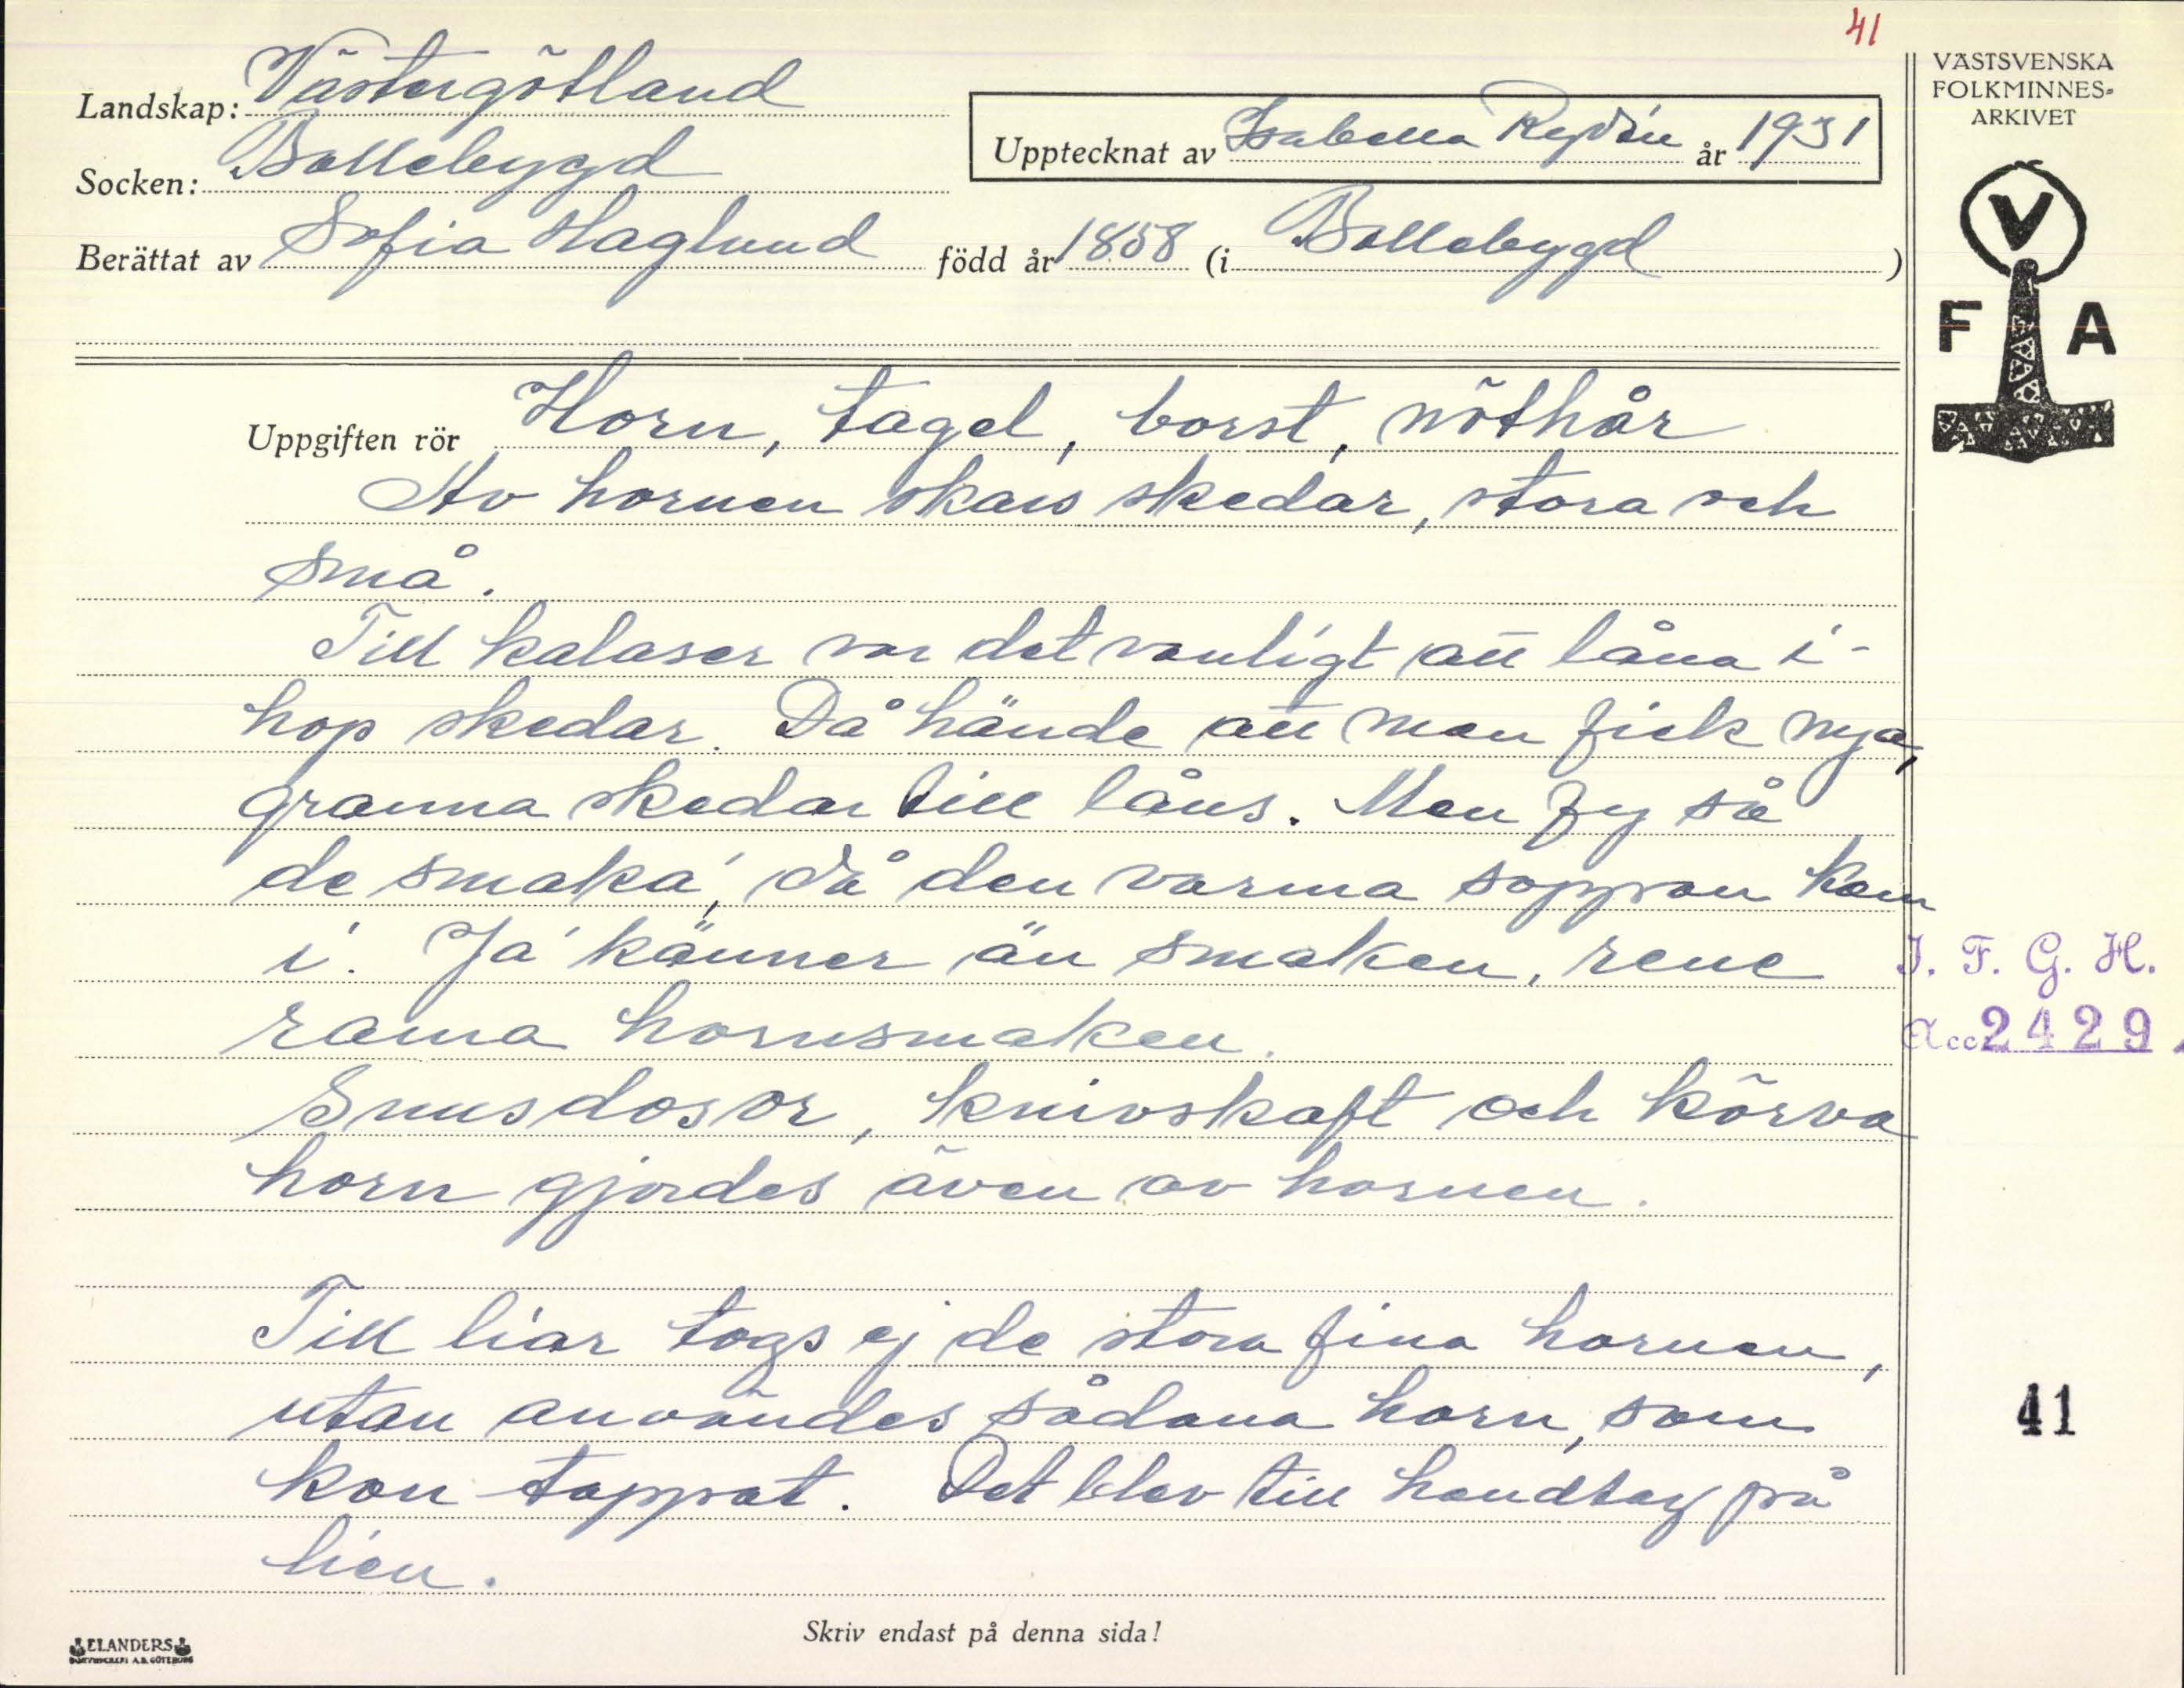 41
VÄSTSVENSKA
FOLKMINNES-
ARKIVET
Landskap: Västergötland
Upptecknat av Isabella Rydén år 1931
Socken: Bollebygd
Berättat av Sofia Haglund född år 1858 (i Bollebygd )
V
F A
Uppgiften rör Horn, tagel, borst, nöthår
Av hornen skars skedar, stora och
små.
Till kalaser var det vanligt att låna i-
hop skedar. Då hände att man fick nya,
granna skedar till låns. Men fy så
de smaka', då den varma soppan kom
i. Ja' känner än smaken, rene
rama hornsmaken.
I. F. G. H.
Acc 2429
Snusdosor, knivskaft och körva
horn gjordes även av hornen.
Till liar togs ej de stora fina hornen,
utan användes sådana horn, som
kon tappat. Det blev till handtag på
lien.
41
Skriv endast på denna sida!
ELANDERS
BOKTRYCKERI A.B. GÖTEBORG